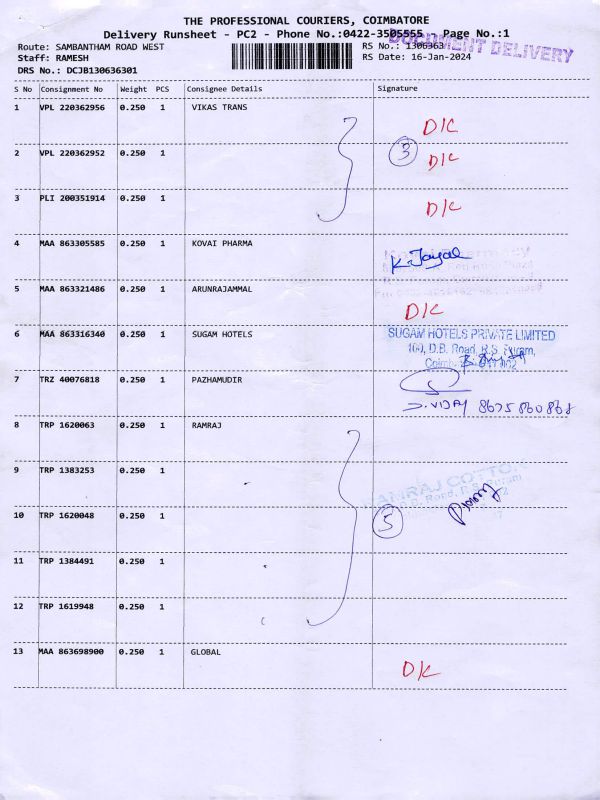 THE PROFESSIONAL COURIERS, COIMBATORE
Delivery Runsheet - PC2 - Phone No.:0422-3505555 - Page No.:1
DOCUMENT DELIVERY
Route: SAMBANTHAM ROAD WEST
RS No.: 1306363
Staff: RAMESH
RS Date: 16-Jan-2024
DRS No.: DCJB130636301
S No Consignment No Weight PCS Consignee Details Signature
1 VPL 220362956 0.250 1 VIKAS TRANS D/C
2 VPL 220362952 0.250 1 3 D/C
3 PLI 200351914 0.250 1 D/C
4 MAA 863305585 0.250 1 KOVAI PHARMA K. Jayal
5 MAA 863321486 0.250 1 ARUNRAJAMMAL D/C
6 MAA 863316340 0.250 1 SUGAM HOTELS SUGAM HOTELS PRIVATE LIMITED
D.B. Road, R.S. Puram,
7 TRZ 40076818 0.250 1 PAZHAMUDIR
J. VIJAY 8675860868
8 TRP 1620063 0.250 1 RAMRAJ
9 TRP 1383253 0.250 1 RAMRAJ COTTON
D.B. Road, R.S. Puram
10 TRP 1620048 0.250 1 5
11 TRP 1384491 0.250 1
12 TRP 1619948 0.250 1
13 MAA 863698900 0.250 1 GLOBAL D/C